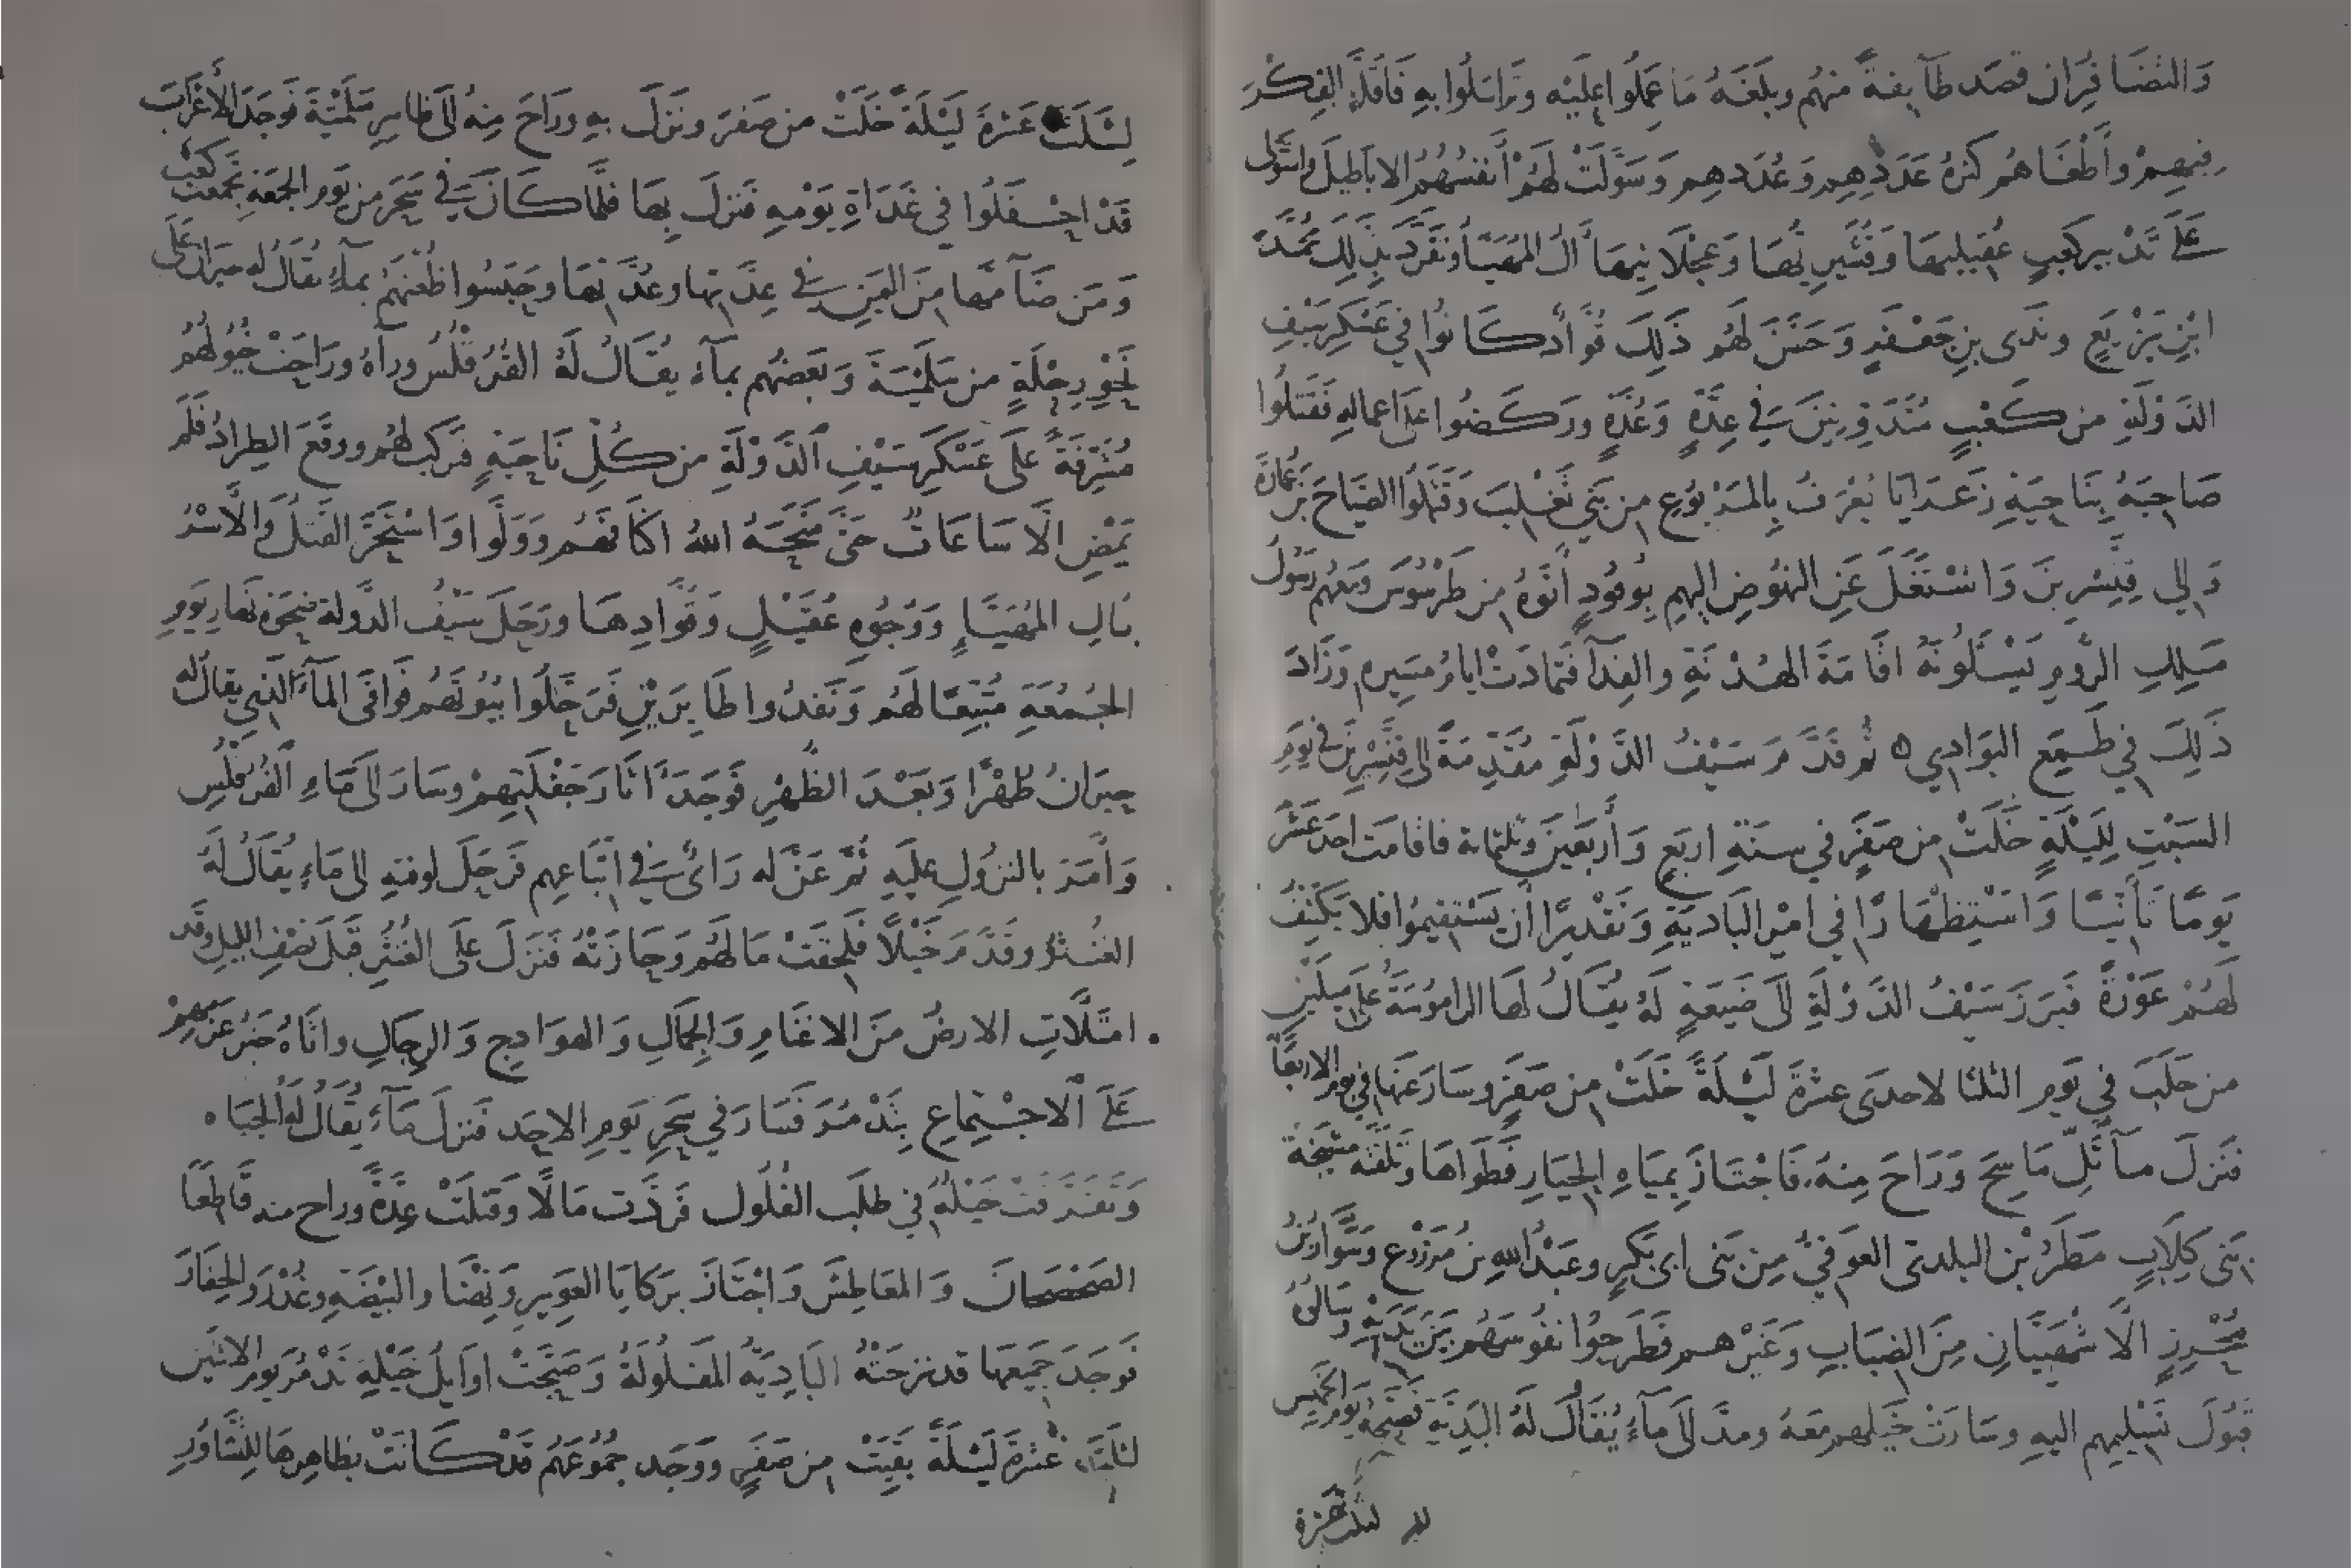 وَالتَضَافُرِ ان قصَد طآيفةً منهُم وبلَغَهُ مَا عَمِلُوا عَلَيْه وتَراسَلُوا بِهِ فَاقَلَّ الفِكْرَ
فيهِمْ وأَطْغَاهُم كثرةُ عَدَدِهِم وعُدَدِهِم وَسَوَّلَتْ لَهُمْ أَنفُسُهُمُ الاباطيلَ واستَولى
عَلَى تَدْبيرِ كَعبٍ عُقَيليها وَقُشَيرِيّها وَعَجْلَانِيها آلُ المهَيَّا وتفرَّدَ بذلكَ محمّدُ
ابْنِ بَزيْعٍ ونَدَى بنِ جَعْفَرٍ وَحَسَّنَ لَهُم ذَلِكَ قُوَّادٌ كَانُوا في عَسْكَرِ سَيْفِ
الدَوْلَةِ من كَعْبٍ مُتَدَوّنينَ في عِدَّةٍ وَعُدَّةٍ وركَضُوا على اعمالِهِ فقَتَلُوا
صَاحِبَهُ بِنَاحِيَةِ زَعْرَايَا يُعْرَفُ بِالمَرْبُوعِ من بَنِي تَغْلِبَ وَقَتَلُوا الصَبَاحَ بنَ عُمَارَةَ
وَالِي قِنَّسْرينَ وَاشتَغَلَ عَنِ النهُوضِ اليهِم بِوفُودٍ أَتَوْهُ من طَرْسُوسَ ومعهُم رَسُولُ
مَلِكِ الرُّومِ يَسْئَلُونَهُ اقَامَةَ الهُدْنَةِ والفِدآ فتمادَتْ ايامُ مَسِيرِهِ وَزَادَ
ذَلِكَ فِي طَمَعِ البَوَادِي ه ثم قدَّمَ سَيْفُ الدَوْلَةِ مُقَدّمَةً الى قِنَّسْرِينَ في يَومِ
السَبْتِ لِلَيْلَةٍ خَلَتْ من صَفَرٍ في سنَةِ اربَعٍ وَأَربَعينَ وثلثماية فاقامَت احدَ عشَرَ
يَومًا تَأَنّيًا وَاسْتِظْهَارًا في امْرِ البَاديَةِ وَتَقْديرًا أن يَسْتَقيمُوا فلا يَكْشِفُ
لَهُمْ عَوْرَةً فبَرزَ سَيْفُ الدَوْلَةِ الَى ضَيعَةٍ لَهُ يُقَالُ لها الراموسَةُ عَلَى مِيلَينِ
من حَلَبَ في يَومِ الثلثا لاحدَى عشرَةَ لَيْلَةً خَلَتْ من صَفَرٍ وسَارَ عَنهَا في يومِ الاربعآ
فنَزلَ مآ تَلِّ مَاسِحَ وَرَاحَ مِنهُ فَاجْتَازَ بِمِيَاهِ الحِيَارِ فطَوَاهَا وتلَقّتهُ مَشيخَةُ
بَنى كِلَابٍ مَطَرُ بْنُ البلدىّ العَوفيُّ مِن بَنى ابى بَكرٍ وعَبْدُ اللهِ بنُ مَزرُوعٍ وسَوَّارُ بْنُ
مُحْرِزٍ الَّا شَهْمِيَّانِ مِنَ الضِبَابِ وَغَيرْهم فطَرحُوا نفُوسَهُم بَيْنَ يَدَيْهِ وسَالُوُ
قَبُولَ تَسْليمِهم اليهِ وسَارَتْ خيلهم معَهُ ومدّ الَى مآءٍ يُقَالُ لَهُ البَديّة فصَبّحَهُ يومَ الخميسِ
لثلث عشرة
لِثلَث عَشرةَ لَيْلَةً خَلَتْ من صَفرَ ونَزلَ بهِ ورَاحَ مِنهُ الَى ظاهِرِ سَلَمْيَةَ فوجَدَ الأَعْرَابَ
قَدْ اجْفَلُوا في غَدَاةِ يَوْمِهِ فنَزلَ بِهَا فلَمَّا كَانَ في سَحَرِ من يَومِ الجمعَةِ تجَمّعَت كَعْبٌ
وَمَن ضَآمَّها مِنَ اليَمنِ في عِدَّتها وعُدَّتها وحَبَسُوا ظُعنَهُم بمآءٍ يُقَالُ لَه حيرانُ عَلَى
نَحْوِ رِحْلَةٍ من سَلَمْيَةَ وَبَعضُهُم بمآءٍ يُقَالُ لَهُ الفُرْقُلُسُ ورآهُ ورَاحَتْ خيُولُهُمْ
مُشْرِفَةً عَلَى عَسْكَرِ سَيْفِ الدَوْلَةِ من كُلِّ نَاحِيَةٍ فركبَ لهُم ووقَعَ الطِرادُ فلَم
يَمْضِ الَّا سَاعَاتٌ حَتّى مَنَحَهُ اللهُ اكَتافَهُم وَوَلَّوا وَاسْتَحَرَّ القَتلُ والَاسْرُ
بآلِ المُهَيَّا وَوُجُوهِ عُقَيْلٍ وَقُوَّادِهَا ورَحَلَ سَيْفُ الدَولة ضَحوَةَ نهارِ يَومِ
الجُمُعَةِ مُتَّبِعًا لَهُم وَنَفَذُوا طَايرِينَ فَرَحَّلُوا بيُوتَهُم فوافَى المآءَ الذي يقَال له
حِيرَانُ ظُهْرًا وَبَعْدَ الظُهْرِ فَوَجَدَ آثارَ جَفْلَتِهِمْ وسَارَ الَى مَاءِ الفُرْقُلُسِ
وَأَمَرَ بالنزُولِ علَيهِ ثُمّ عَنَّ له رَايٌ في اتّبَاعِهِم فرَحَلَ لوقتِهِ الى مَاءٍ يُقَالُ لَهُ
الغُنْثُرُ وقدَّمَ خَيْلًا فلَحِقَتْ مَالَهُم وَحَازَتْهُ فَنَزَلَ عَلَى الغُنْثُرِ قبْلَ نصْفِ الليلِ وقَد
امتَلَأَتِ الارضُ مِنَ الاغنَامِ وَالجِمَالِ وَالهوَادِجِ وَالرِحَالِ واتَاهُ خبَرُ عَزمِهِمْ
عَلَى الاجْتِماعِ بِتَدْمُرَ فَسَارَ في سَحَرِ يَومِ الاحَدِ فَنزلَ مآءً يُقَالُ لَهُ الجَبَاه
وَتَفَرّقَتْ خَيْلُهُ في طلَبِ الفُلُولِ فَرَدَّت مَالًا وَقتَلَتْ عِدَّةً وراح منه قَاطِعًا
الصَحْصَحانَ وَالمعَاطِسَ وَاجْتَازَ برَكَايَا العَويرِ وَنِهْيَا والبْيضَةِ وغُدْرِ والجِفَارَ
فَوجَدَ جَميعَها قد نزحَتْهُ البَاديَةُ المَفلُولَةُ وَصَبَّحَتْ اوَايلُ خَيْلِهِ تَدْمُرَ يومَ الاثنَينِ
لثلث عشْرَةَ لَيْلَةً بقيَتْ من صَفَرٍ ووَجَد جمُوعَهُم قَدْ كَانَتْ بظاهرِهَا للتَشَاوُرِ